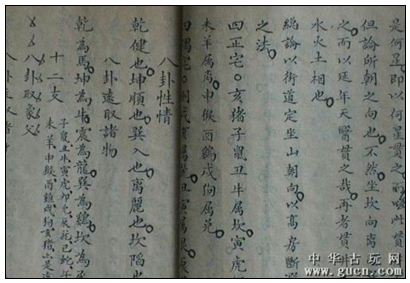 是何星即以何星貫之以此貫
但論所朝之向也不然坐坎向离
之而以延年天醫貫之哉再者貫
水火土相也
總論以街道定坐山朝向以高房斷
之法
四正宅亥猪子鼠丑牛属坎寅虎
未羊属离申猴酉鷄戌狗属兑
四隅宅
八卦性情
乾健也坤順也巽入也离麗也坎陷也
八卦遠取諸物
乾為馬坤為牛震為龍巽為鷄坎為
十二支
子鼠丑牛寅虎卯兔辰龍巳蛇午
未羊申猴酉鷄戌狗亥猪
八卦取象父
中华古玩网
www.gucn.com